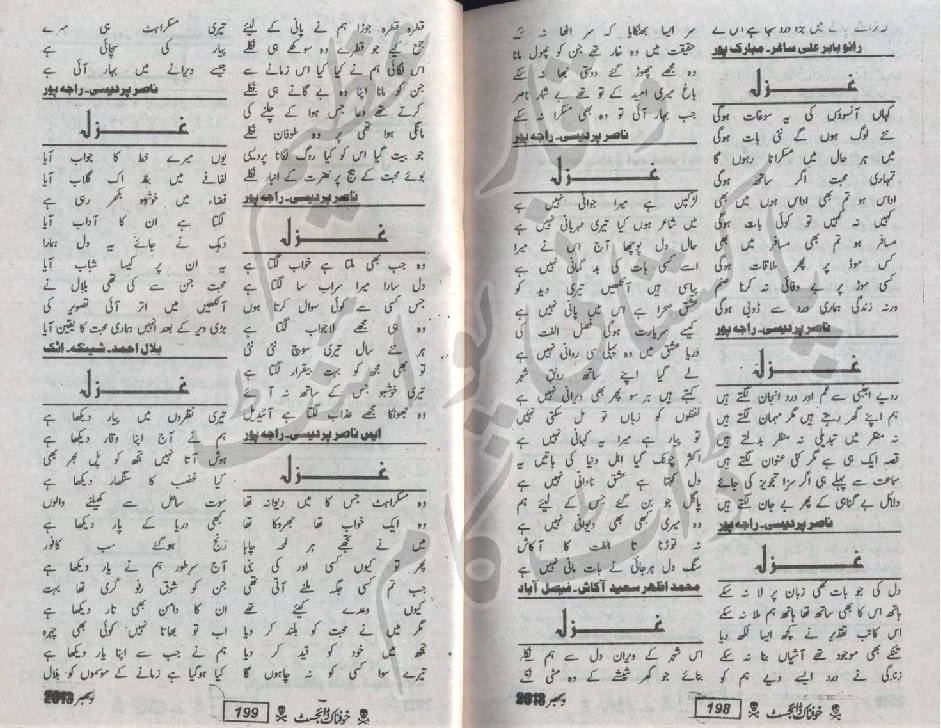 رانو بابر علی ساغر۔ مبارک پور
غزل
کہاں آنسوؤں کی یہ سوغات ہوگی
نئے لوگ ہوں گے نئی بات ہوگی
میں ہر حال میں مسکراتا رہوں گا
تمہاری محبت اگر ساتھ ہوگی
اداس ہو تم بھی اداس ہوں میں بھی
کہیں نہ کہیں تو کوئی بات ہوگی
مسافر ہو تم بھی مسافر میں بھی
کس موڑ پر پھر ملاقات ہوگی
کسی موڑ پر بے وفائی نہ کرنا صنم
ورنہ زندگی ہماری درد سے ڈوبی ہوگی
ناصر پردیسی۔ راجہ پور
غزل
رویے اجنبی سے غم اور درد انجان لگتے ہیں
ہم اپنے گھر رہتے ہیں مگر مہمان لگتے ہیں
نہ منظر میں تبدیلی نہ منظر بدلتے ہیں
قصہ ایک ہی ہے مگر کئی عنوان لگتے ہیں
سماعت سے پہلے ہی اگر سزا تجویز کی جائے
دلائل بے گناہی کے پھر بے جان لگتے ہیں
ناصر پردیسی۔ راجہ پور
غزل
دل کی جو بات تھی زبان پر لا نہ سکے
ہاتھ اس کا بھی ساتھ تھا ہاتھ ہم ملا نہ سکے
اس کاتب تقدیر نے کچھ ایسا لکھ دیا
تنکے بھی موجود تھے آشیاں بنا نہ سکے
زندگی نے درد ایسے دیے ہم کو
سر ایسا جھکایا کہ سر اٹھا نہ سکے
حقیقت میں وہ خار تھے جن کو پھول مانا
وہ مجھے چھوڑ گئے دوستی نبھا نہ سکے
باغ میری امید کے تو تھے بے شمار ناصر
جب بہار آئی تو وہ بھی مسکرا نہ سکے
ناصر پردیسی۔ راجہ پور
غزل
لڑکپن ہے میرا جوانی نہیں ہے
میں شاعر ہوں کیا تیری مہربانی نہیں ہے
حال دل پوچھا آج اس نے میرا
اسے کسی بات کی بد گمانی نہیں ہے
پیاسی ہیں آنکھیں تیری دید کو
عشق صحرا ہے اس میں پانی نہیں ہے
کیسے سیراب ہوگی فصل الفت کی
دریا عشق میں وہ پہلی سی روانی نہیں ہے
لے گیا اپنے ساتھ رونق شہر
کہتے ہیں ہر سو پھر بھی ویرانی نہیں ہے
لفظوں کو زباں تو مل سکتی نہیں
تو پیار ہے میرا یہ کہانی نہیں ہے
اکثر چونک گیا اہل دنیا کی باتیں یہ
دل کہتا ہے عشق نادانی نہیں ہے
پاگل جو بن گئے جس کے لیے ہم
وہ میری کبھی بھی دیوانی نہیں ہے
نہ توڑنا تا الفت کا آکاش
سنگ دل ہرجائی نے بات مانی نہیں ہے
محمد اظہر سعید آکاش۔ فیصل آباد
غزل
اس شہر کے ویران دل سے ہم نکلے
بنائے جو گھر شیشے کے وہ مٹی نکلے
دسمبر 2013
خوفناک ڈائجسٹ
198
قطرہ قطرہ جوڑا ہم نے پانی کے لیے
جمع کیے جو قطرے وہ سوکھے ہی نکلے
اس لگائی ہم نے کیا کیا اس زمانے سے
جن کو مانا اپنا وہ بے گانے ہی نکلے
کرتے تھے دعا جس ہوا کے چلنے کی
مانگی ہوا تھی پر وہ طوفان نکلے
جو بیت گیا اس کو کیا روگ لگانا پردیسی
بوئے محبت کے بیج پر نفرت کے انبار نکلے
ناصر پردیسی۔ راجہ پور
غزل
وہ جب بھی ملتا ہے خواب لگتا ہے
دل سارا میرا سراب سا لگتا ہے
جس کسی سے کوئی سوال کرتا ہوں
وہ ہی مجھے لاجواب لگتا ہے
ہر نئے سال تیری سوچ نئی نئی
تو بھی مجھ کو بہت بیقرار لگتا ہے
تیری خوشبو جس کے ساتھ نہ آئے
وہ جھونکا مجھے عذاب لگتا ہے آئیڈیل
ایس ناصر پردیسی۔ راجہ پور
غزل
وہ مسکراہٹ جس کا میں دیوانہ تھا
وہ ایک خواب تھا جھروکا تھا
میں نے تجھے ہر لمحہ چاہا
پھر تو کیوں کسی اور کی بنی
جب تم کسی جگہ ملنے آتی تھی
کیوں وعدے کیئے تھے
مگر میں نے محبت کو بلند کر دیا
تجھ میں خود کو قید کر دیا
تیرے سوا کسی کو نہ چاہوں گا
تیری مسکراہٹ ہی میرے
پیار کی سچائی ہے
جیسے ویرانے میں بہار آئی ہے
ناصر پردیسی۔ راجہ پور
غزل
یوں میرے خط کا جواب آیا
لفافے میں بند اک گلاب آیا
فضاء میں خوشبو بکھر رہی ہے
لگتا ہے ان کا آداب آیا
دہک نے جانے یہ دل ہمارا
یہ ان پر کیسا شباب آیا
محبت جن سے کی تھی بلال نے
آنکھیں میں اتر آئی تصویر کی
بڑی دیر کے بعد انہیں ہماری محبت کا یقین آیا
بلال احمد۔ شینکہ۔ اٹک
غزل
تیری نظروں میں پیار دیکھا ہے
ہم نے آج اپنا وقار دیکھا ہے
ہوش آتا نہیں تجھ کو پل بھر بھی
کیا غضب کا سنگھار دیکھا ہے
موت ساحل سے کھیلنے والوں
کبھی دریا کے پار دیکھا ہے
رنج ہوگئے سب کافور
آج سرطور ہم نے یار دیکھا ہے
جن کو شوق رفو گری تھا بہت
ان کا دامن بھی تار دیکھا ہے
اب تو بھاتا نہیں کوئی بھی چہرہ
ہم نے جب سے اپنا یار دیکھا ہے
کیا ہوگیا ہے زمانے کے موسموں کو بلال
دسمبر 2013
خوفناک ڈائجسٹ
199
پاکستانی پوائنٹ ڈاٹ کام